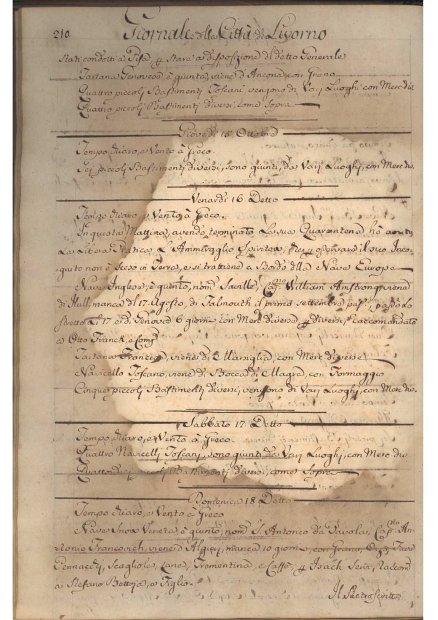 210 Giornale della Città di Livorno
Stati condotti a Pisa p stare a disposizione di detto Generale
Tartana Genovese è giunta, viene d'Ancona, con Grano
Quattro piccoli Bastimenti Toscani, vengono di Varj Luoghi con Merc. div.e
Quattro piccoli Bastimenti diversi, come sopra
Giovedì 15 Ottobre
Tempo chiaro, e Vento à Greco
Sei piccoli Bastimenti diversi, sono giunti da Varj Luoghi, con Merc. div.e
Venardi 16 Detto
Tempo chiaro, e Vento à Greco
In questa Mattina, avendo terminato La sua Quarantena hà avuto
La Libera Pratica L'Ammiraglio Spiritow, p osservare il suo Inco-
gnito non è Sceso in Terra, e si trattiene a Bordo della Nave Europa
Nave Inglese, è giunta, nom.a Capn William Amstrong viene
di Hull manca dl 17 Agosto, di Falmouth il primo settembre pas.o,
dl 17 e da Genova 6 giorni con Merc. diverse
a Otto Franck, e Comp.
Tartana Francese, viene di Marsiglia, con Merc. diverse
Navicello Toscano, viene di Bocca di Magra, con Formaggio
Cinque piccoli Bastimenti diversi, vengono di Varj Luoghi, con Merc. div.e
Sabbato 17 Detto
Tempo chiaro, e Vento à Greco
Quattro Navicelli Toscani, sono giunti da Varj Luoghi, con Merc. div.e
Bastimenti diversi, come Sopra
Domenica 18 Detto
Tempo chiaro, e Vento à Greco
Nave Veneta, è giunta, nom.a S. Antonio di Cap. An-
tonio Francovich, viene d'Algieri, manca 10 giorni, con Grano,
Pennacchi, Scagliole, Lane, Trementina, e Caffè, p
a Stefano e Figlio
Il